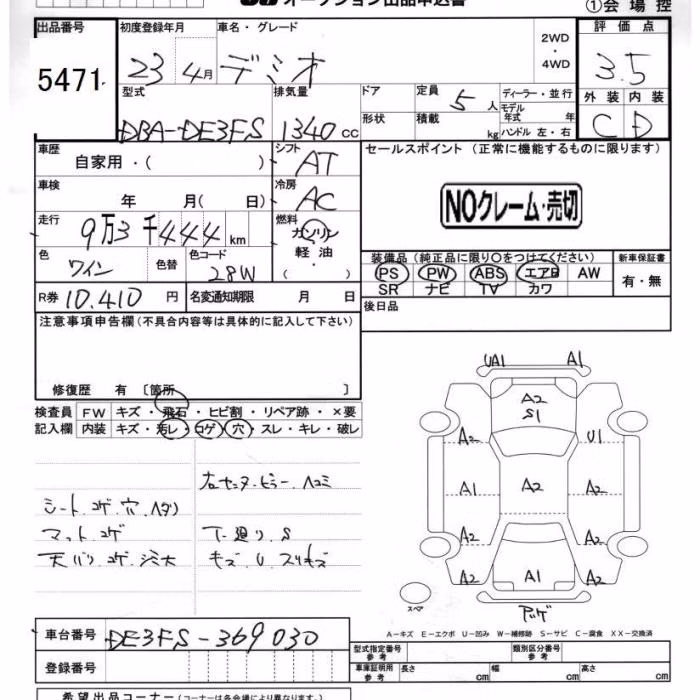 オークション出品申込書
①会場控
出品番号 初度登録年月 車名・グレード 2WD・4WD 評価点
5471 23年4月 デミオ 3.5
型式 排気量 ドア 定員 5人 ディーラー・並行 外装 内装
DBA-DE3FS 1340cc 形状 積載 kg モデル年式 年 ハンドル 左・右 C D
車歴 自家用・( ) シフト AT セールスポイント (正常に機能するものに限ります)
車検 年 月( 日) 冷房 AC NOクレーム・売切
走行 9万3千444km 燃料 ガソリン 軽油 ・( )
色 ワイン 色替 色コード 28W
装備品 (純正品に限り○をつけてください) 新車保証書
PS PW ABS エアB AW 有・無
SR ナビ TV カワ
R券 10.410円 名変通知期限 月 日 後日品
注意事項申告欄 (不具合内容等は具体的に記入して下さい)
修復歴 有 〔箇所 〕
検査員 FW キズ・飛石・ヒビ割・リペア跡・×要
記入欄 内装 キズ・汚レ・コゲ・穴・スレ・キレ・破レ
右センターピラー ヘコミ
シート コゲ 穴 ヘタリ
マット コゲ 下廻り S
天バリ コゲ キズ U スリキズ
UA1 A1
A2
S1
A2 U1
A1 A2 A2
A2 A2
A2 A1 A2
スペア
A-キズ E-エクボ U-凹み W-補修跡 S-サビ C-腐食 XX-交換済
車台番号 DE3FS-369030
登録番号
型式指定番号 参考 類別区分番号 参考
車庫証明用 参考 長さ cm 幅 cm 高さ cm
希望出品コーナー (コーナーは各会場により異なります。)